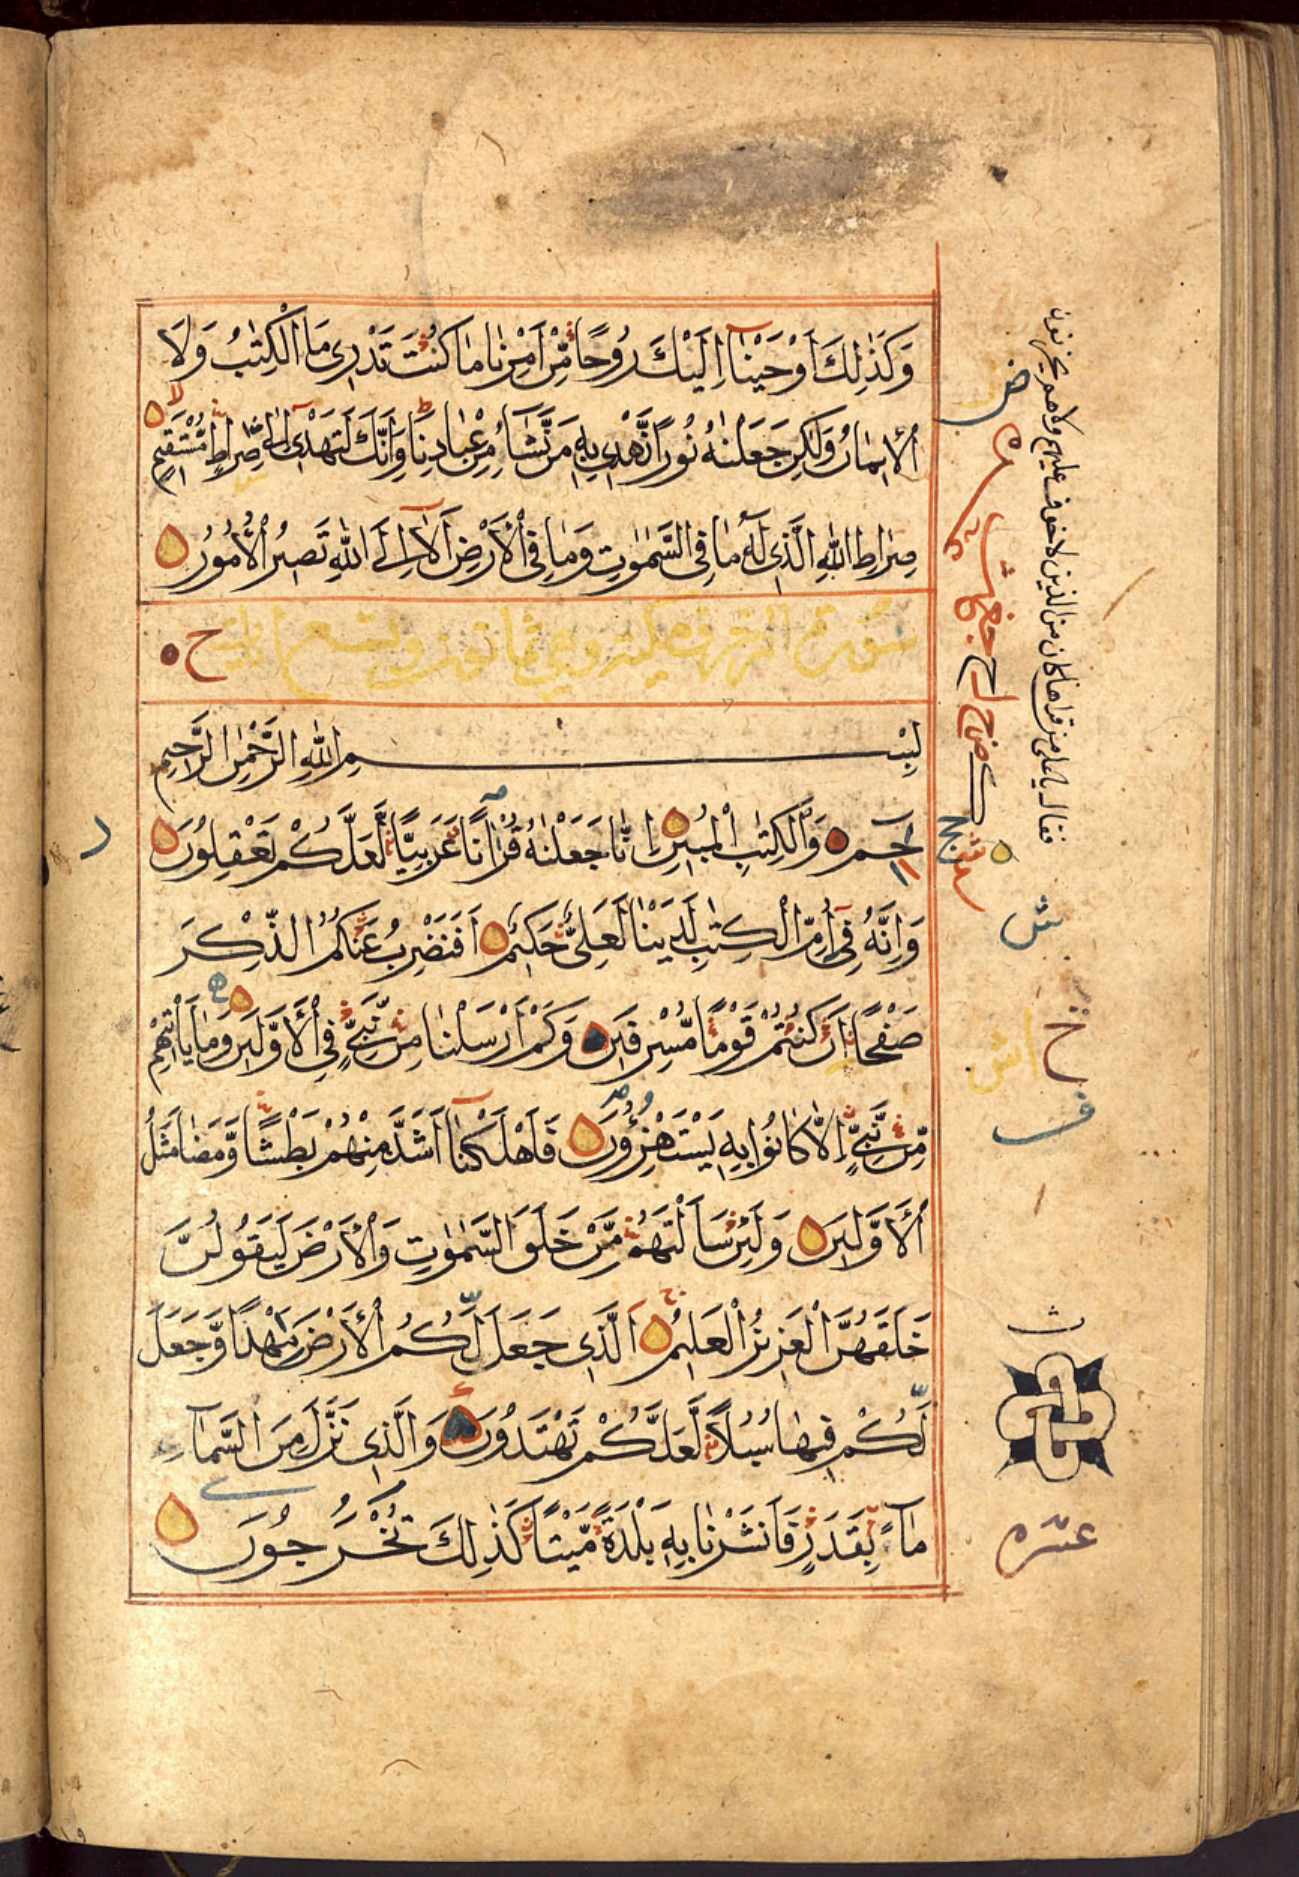 وَكَذٰلِكَ اَوْحَيْنَآ اِلَيْكَ رُوحًا مِّنْ اَمْرِنَا مَا كُنْتَ تَدْرِى مَا الْكِتٰبُ وَلَا
الْاِيْمَانُ وَلٰكِنْ جَعَلْنٰهُ نُورًا نَّهْدِى بِهٖ مَنْ نَّشَآءُ مِنْ عِبَادِنَا وَاِنَّكَ لَتَهْدِىٓ اِلٰى صِرَاطٍ مُّسْتَقِيْمٍ
صِرَاطِ اللّٰهِ الَّذِى لَهٗ مَا فِى السَّمٰوٰتِ وَمَا فِى الْاَرْضِ اَلَآ اِلَى اللّٰهِ تَصِيْرُ الْاُمُوْرُ
سورة الزخرف مكية وهى ثمانون وتسع ايات
بِسْمِ اللّٰهِ الرَّحْمٰنِ الرَّحِيْمِ
حٰمٓ وَالْكِتٰبِ الْمُبِيْنِ اِنَّا جَعَلْنٰهُ قُرْاٰنًا عَرَبِيًّا لَّعَلَّكُمْ تَعْقِلُوْنَ
وَاِنَّهٗ فِىٓ اُمِّ الْكِتٰبِ لَدَيْنَا لَعَلِىٌّ حَكِيْمٌ اَفَنَضْرِبُ عَنْكُمُ الذِّكْرَ
صَفْحًا اَنْ كُنْتُمْ قَوْمًا مُّسْرِفِيْنَ وَكَمْ اَرْسَلْنَا مِنْ نَّبِىٍّ فِى الْاَوَّلِيْنَ وَمَا يَاْتِيْهِمْ
مِّنْ نَّبِىٍّ اِلَّا كَانُوْا بِهٖ يَسْتَهْزِءُوْنَ فَاَهْلَكْنَآ اَشَدَّ مِنْهُمْ بَطْشًا وَّمَضٰى مَثَلُ
الْاَوَّلِيْنَ وَلَئِنْ سَاَلْتَهُمْ مَّنْ خَلَقَ السَّمٰوٰتِ وَالْاَرْضَ لَيَقُوْلُنَّ
خَلَقَهُنَّ الْعَزِيْزُ الْعَلِيْمُ الَّذِى جَعَلَ لَكُمُ الْاَرْضَ مَهْدًا وَّجَعَلَ
لَكُمْ فِيْهَا سُبُلًا لَّعَلَّكُمْ تَهْتَدُوْنَ وَالَّذِى نَزَّلَ مِنَ السَّمَآءِ
مَآءً بِقَدَرٍ فَاَنْشَرْنَا بِهٖ بَلْدَةً مَّيْتًا كَذٰلِكَ تُخْرَجُوْنَ
عشره